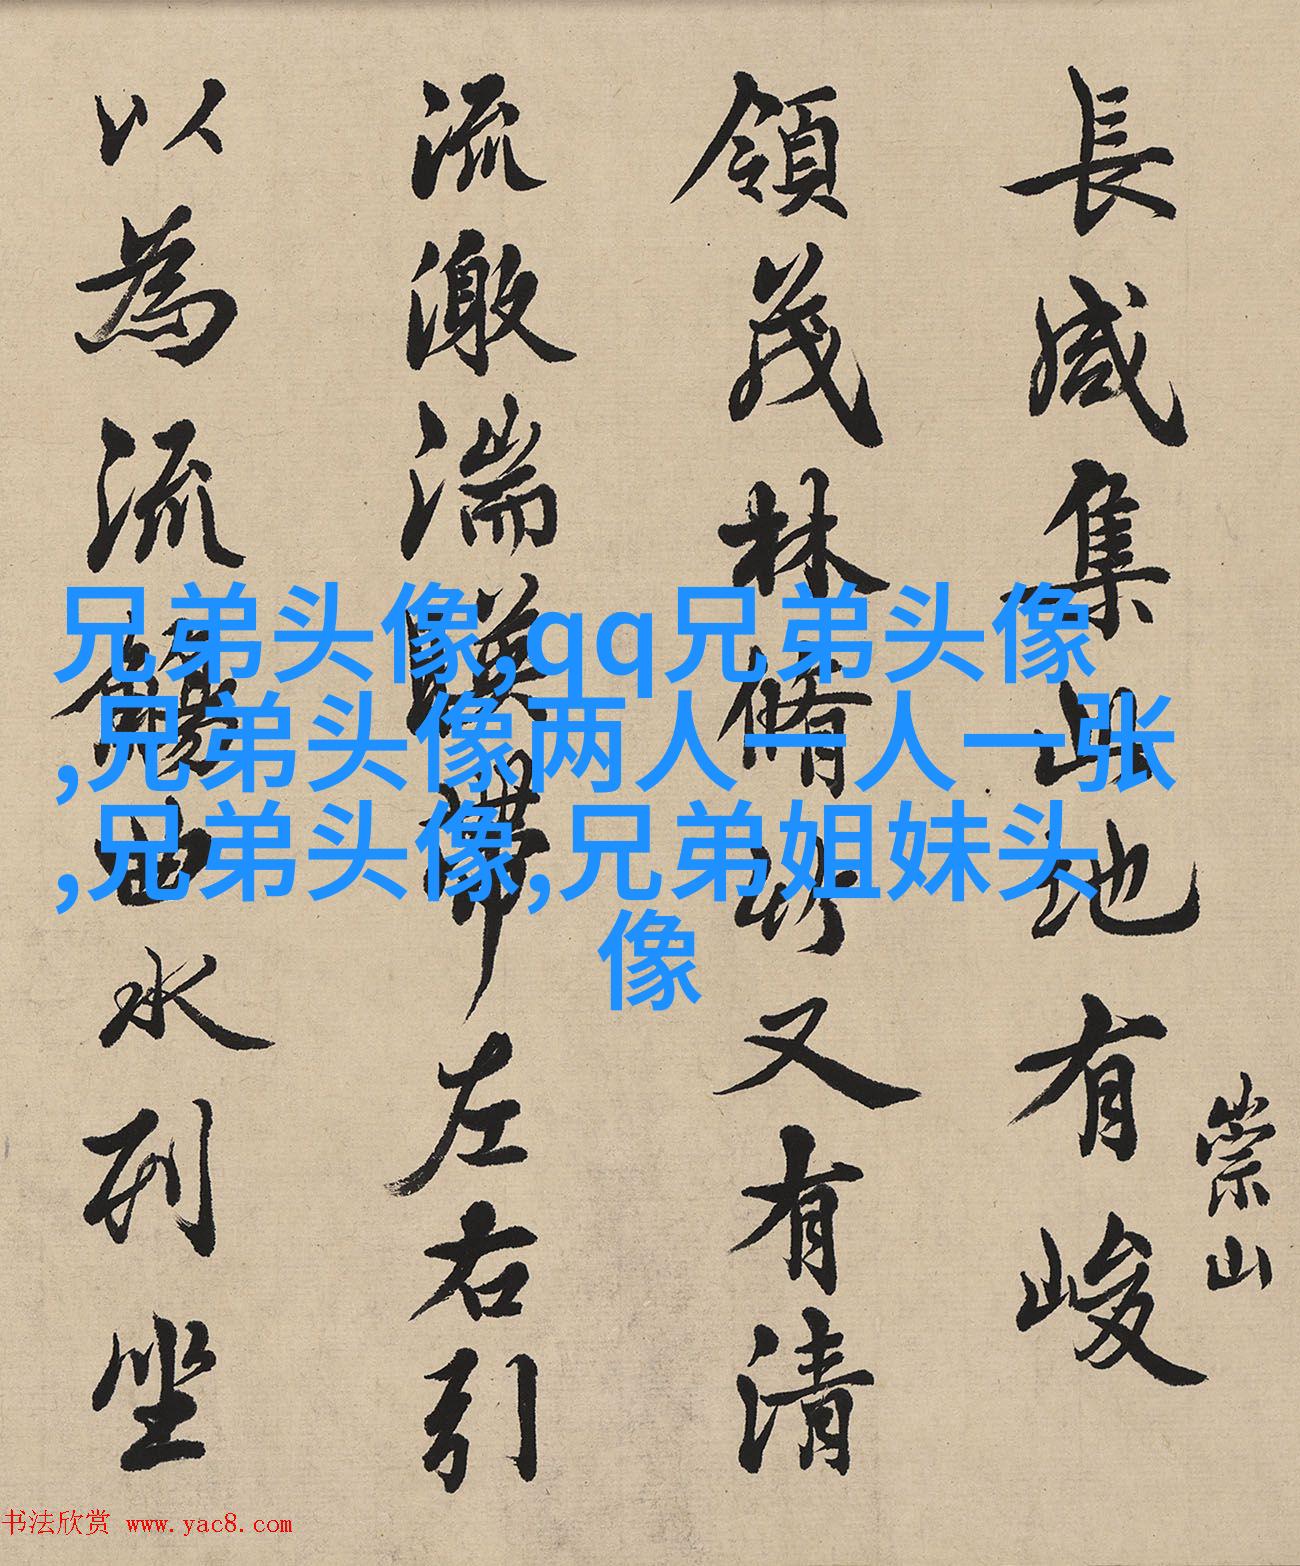 長咸集此地有峻
崇山
領茂林脩竹又有清
流激湍暎帶左右引
以為流觴曲水列坐
兄弟头像,qq兄弟头像
,兄弟头像两人一人一张
,兄弟头像,兄弟姐妹头
像
书法欣赏 www.yac8.com